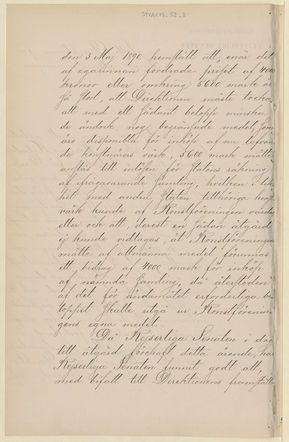 den 3 Maj 1890 hemställt att, enär det
af egarinnan fordrade priset af 4000
kronor eller omkring 5600 mark är
så stort, att Direktionen måste tveka
att med ett sådant belopp minska
de ändock nog begränsade medel, som
äro disponibla för inköp af nu lefvan
de konstnärers värk, 5600 mark måtte
anslås till inlösen för statens räkning
af ifrågavarande samling, hvilken i lik
het med andra staten tillhöriga konst
värk kunde af Konstföreningen vårdas
eller och att, derest en sådan åtgärd
ej kunde vidtagas, åt Konstföreningen
måtte af allmänna medel förunnas
ett bidrag af 4000 mark för inköp
af nämnda samling, då återstoden
af det för ändamålet erforderliga be
loppet skulle utgå ur Konstförenin
gens egna medel.
Då Kejserliga Senaten i dag
till åtgärd förehaft detta ärende, har
Kejserliga Senaten funnit godt att,
med bifall till Direktionens framställ